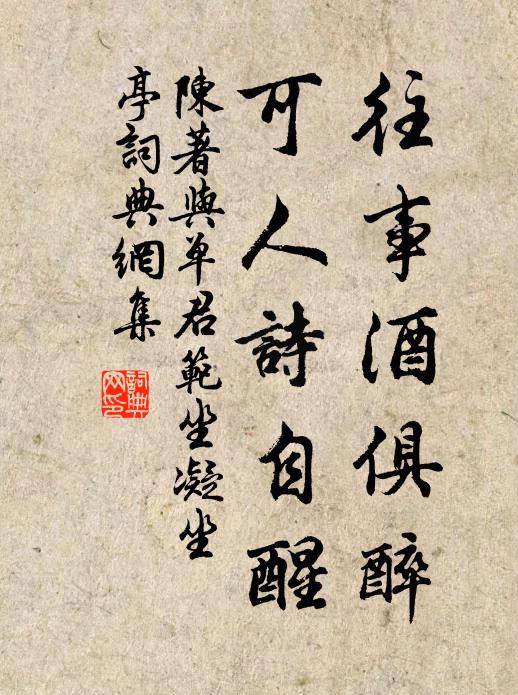 往事酒俱醉
可人詩自醒
陳著與單君範坐凝坐
亭詞典網集
詞典
网印